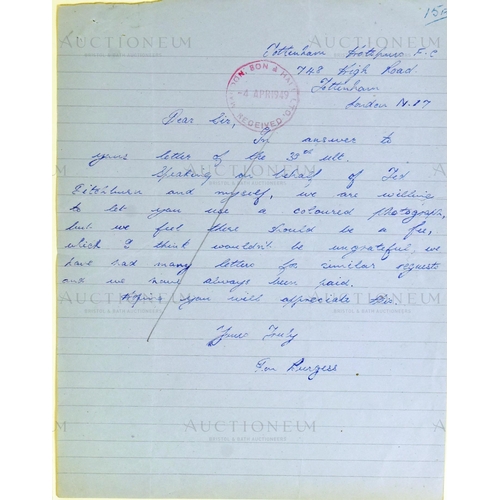 15
AUCTIONEUM
Tottenham Hotspurs F.C
748 High Road.
Tottenham
London N.17
SON & HALL
-4 APR 1949
RECEIVED
Dear Sir,
In answer to
your letter of the 30th ult.
Speaking on behalf of Ted
Ditchburn and myself, we are willing
to let you use a coloured photograph,
but we feel there should be a fee,
which I think wouldn't be ungrateful, we
have had many letters for similar requests
and we have always been paid.
Hoping you will appreciate this.
AUCTIONEUM
BRISTOL & BATH AUCTIONEERS
Yours Truly
Ron Burgess
AUCTIONEUM
BRISTOL & BATH AUCTIONEERS